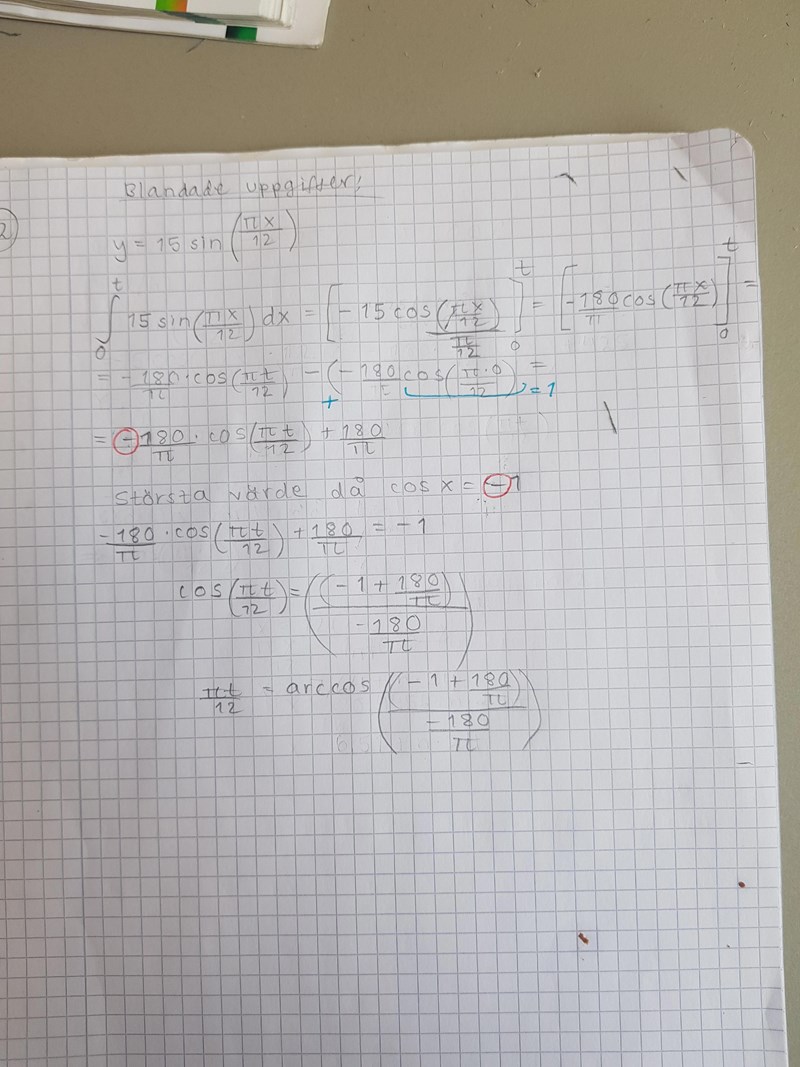 Blandade uppgifter;
2
y = 15 sin(πx/12)
∫₀ᵗ 15 sin(πx/12) dx = [-15 cos(πx/12)/(π/12)]₀ᵗ = [-180/π cos(πx/12)]₀ᵗ =
= -180/π · cos(πt/12) - (-180/π cos(π·0/12) =
+ = 1
= -180/π · cos(πt/12) + 180/π
Största värde då cos x = -1
-180/π · cos(πt/12) + 180/π = -1
cos(πt/12) = ((-1 + 180/π)/(-180/π))
πt/12 = arccos((-1 + 180/π)/(-180/π))